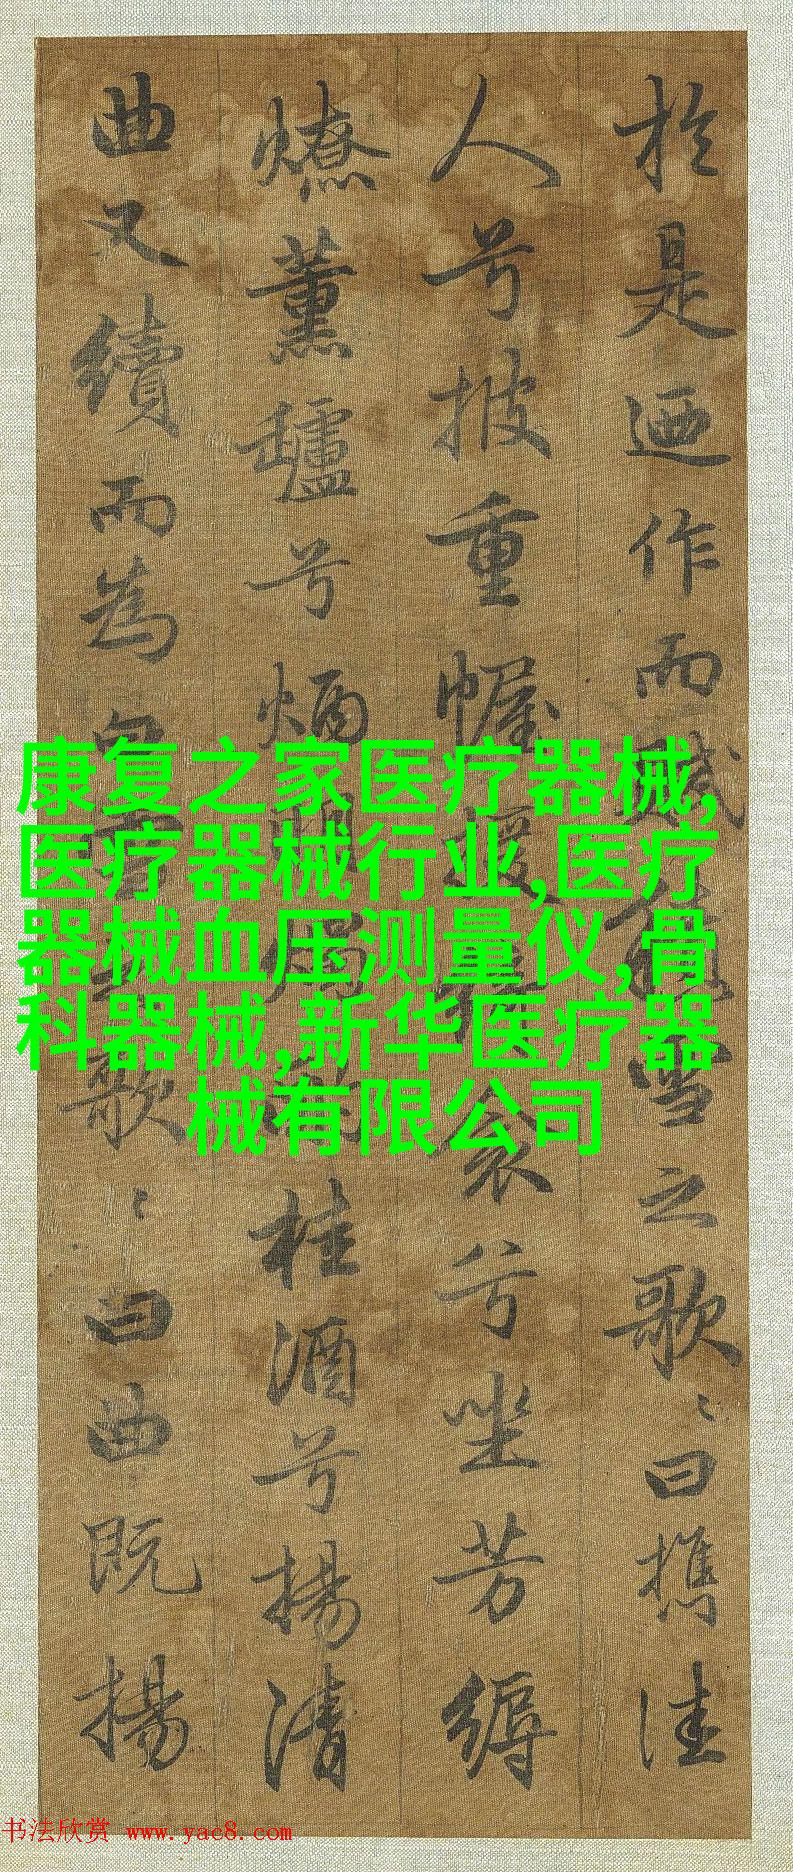 於是迺作而賦雪之歌〻曰攜佳
人兮披重幄援衾兮坐芳縟
燎薰罏兮炳明燭桂酒兮揚清
曲又續而為白雪歌〻曰曲既揚
康复之家医疗器械,
医疗器械行业,医疗
器械血压测量仪,骨
科器械,新华医疗器
械有限公司
书法欣赏 www.yac8.com